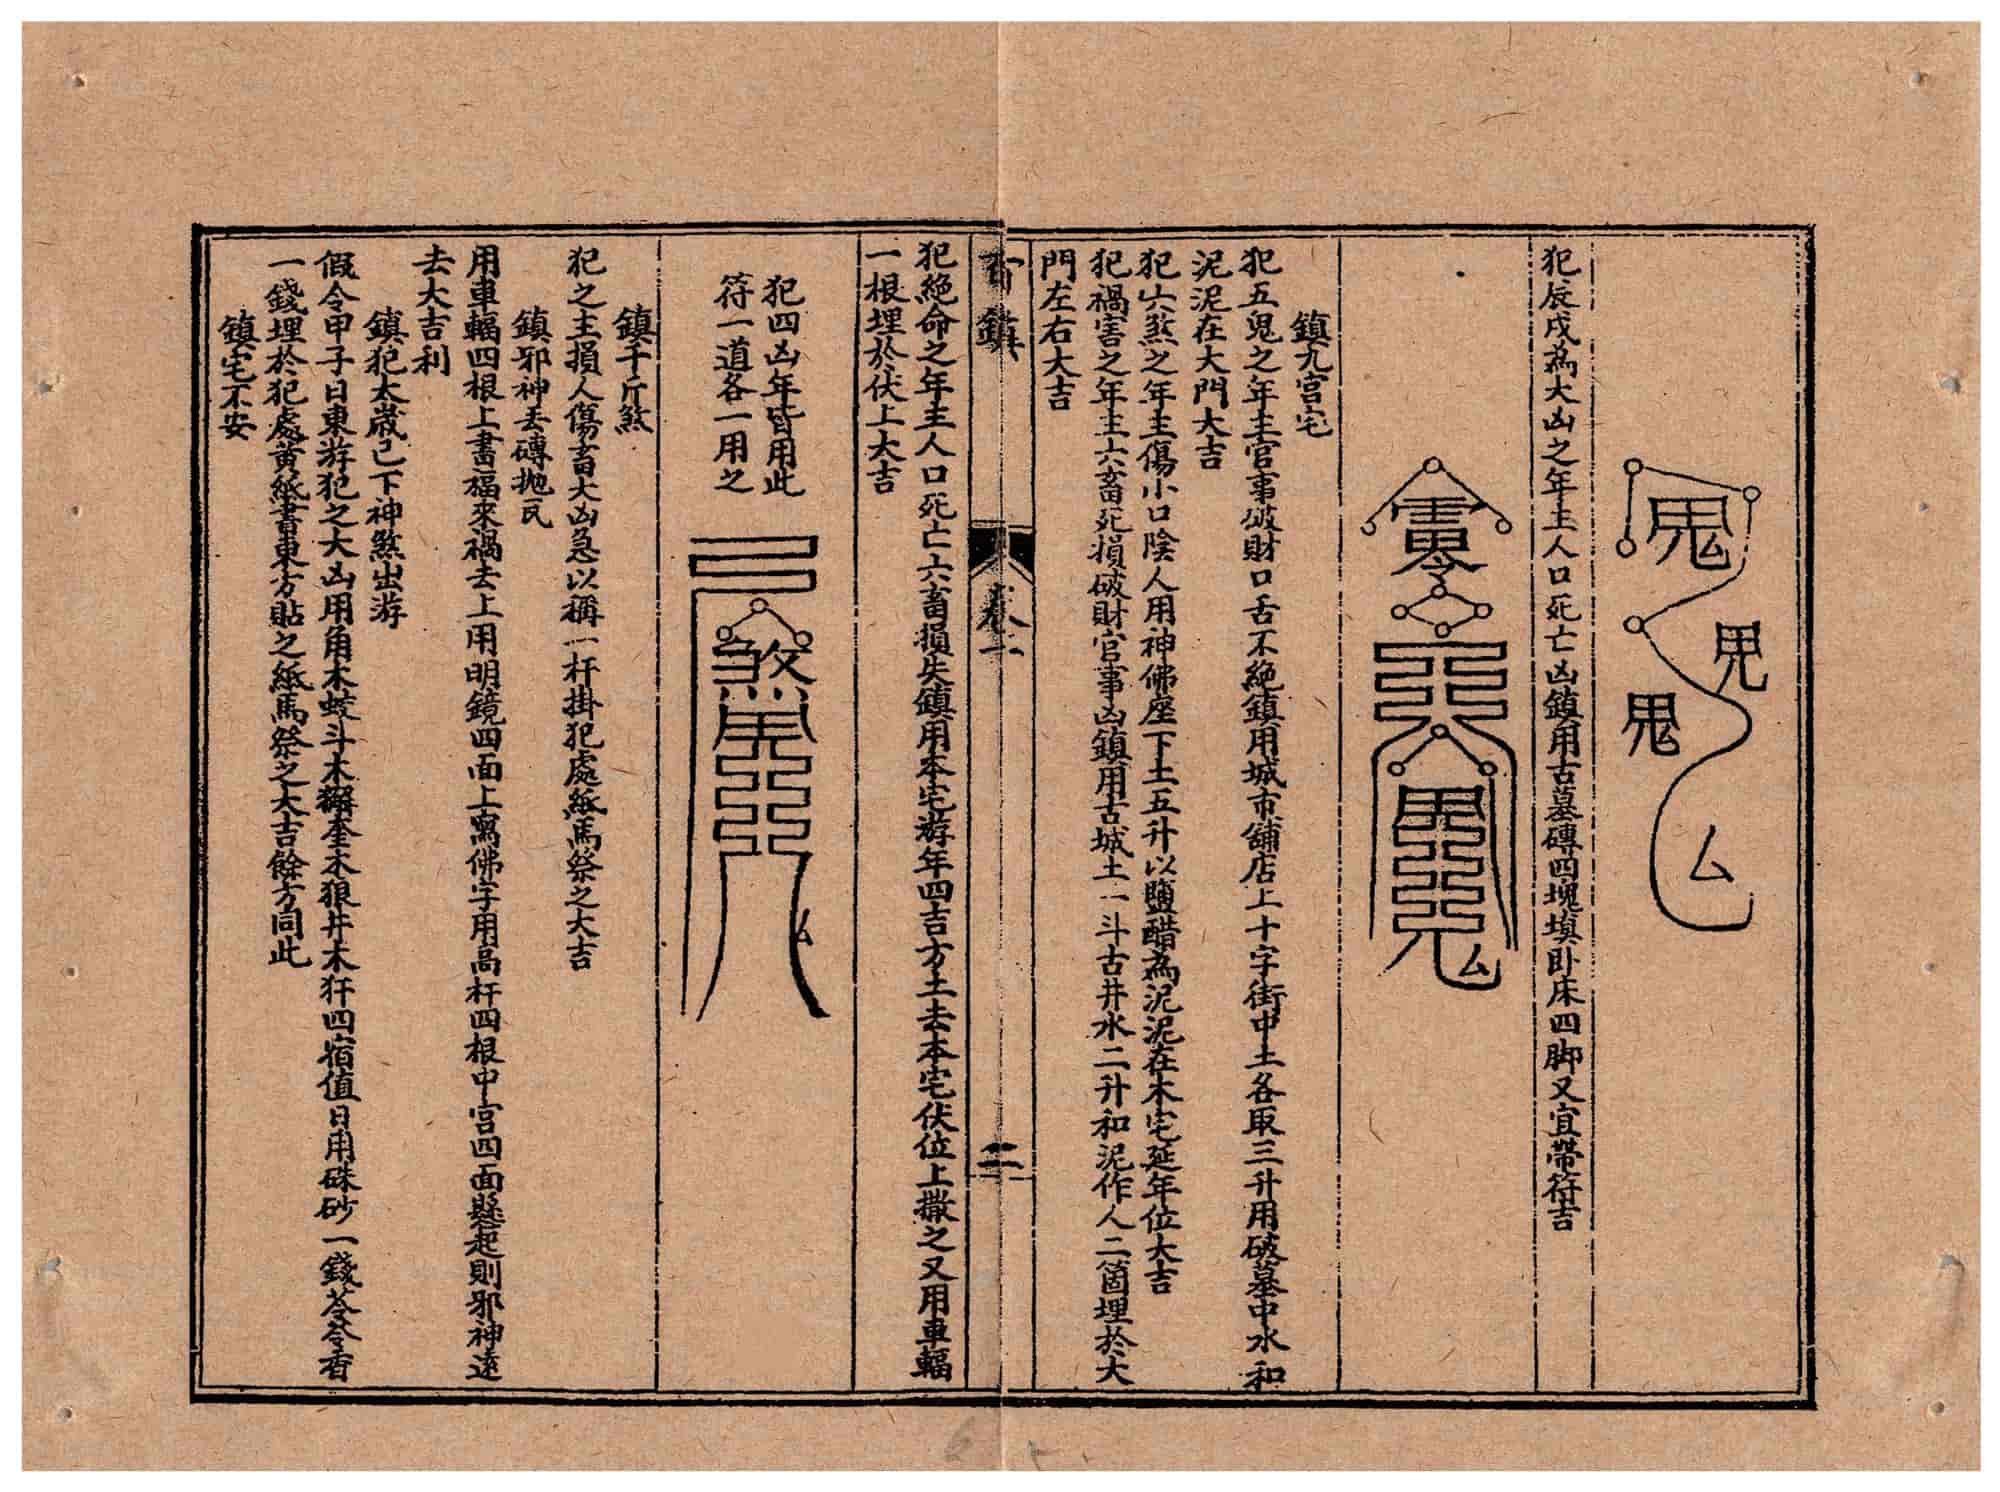 犯辰戌為大凶之年主人口死亡凶鎮用古墓磚四塊填卧床四脚又宜帶符吉
鎮九宮宅
犯五鬼之年主官事破財口舌不絕鎮用城市舖店上十字街中土各取三升用破墓中水和
泥泥在大門大吉
犯六煞之年主傷小口陰人用神佛座下土五升以鹽醋為泥泥在本宅延年位大吉
犯禍害之年主六畜死損破財官事凶鎮用古城土一斗古井水二升和泥作人二箇埋於大
門左右大吉
百鎮 卷一 二
犯絕命之年主人口死亡六畜損失鎮用本宅游年四吉方土去本宅伏位上撒之又用車輻
一根埋於伏上大吉
犯四凶年皆用此
符一道各一用之
鎮千斤煞
犯之主損人傷畜大凶急以稱一杆掛犯處紙馬祭之大吉
鎮邪神丟磚拋瓦
用車輻四根上書福來禍去上用明鏡四面上寫佛字用高杆四根中宮四面懸起則邪神遠
去大吉利
鎮犯太歲已下神煞出游
假令甲子日東游犯之大凶用角木蛟斗木獬奎木狼井木犴四宿值日用硃砂一錢苓苓香
一錢埋於犯處黃紙書東方貼之紙馬祭之大吉餘方同此
鎮宅不安